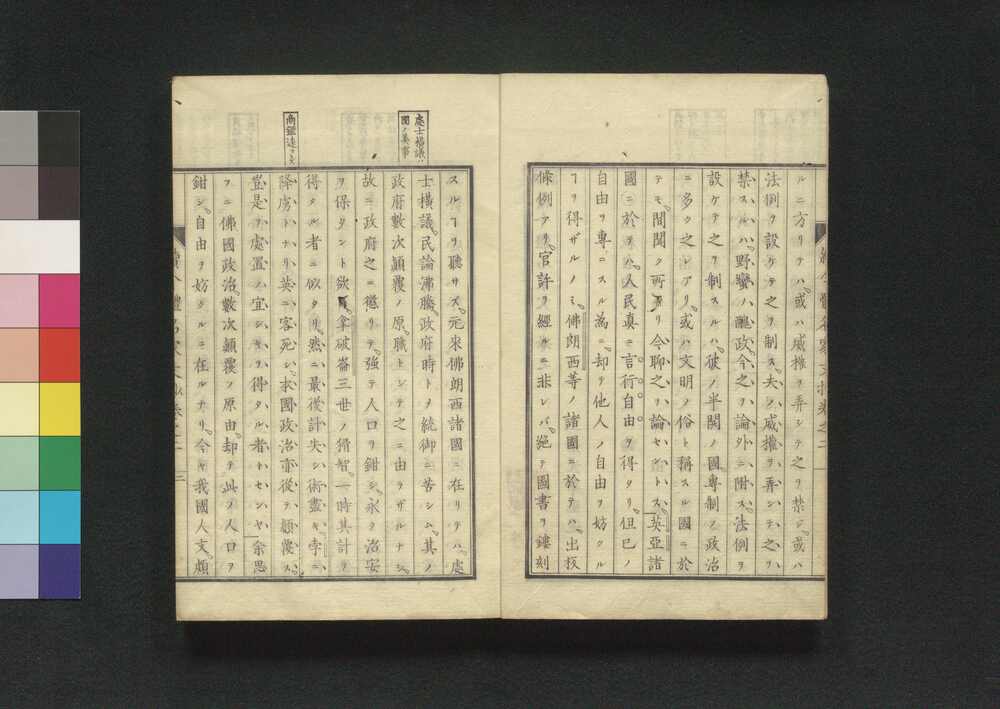 ルニ方リテハ。或ハ威權ヲ弄シテ之ヲ禁シ。或ハ
法例ヲ設ケテ之ヲ制ス。夫レ威權ヲ弄シテ之ヲ
禁スルハ。野蠻ノ醜政。今之ヲ論外ニ附ス。法例ヲ
設ケテ之ヲ制スルハ。彼ノ半開ノ國專制ノ政治
ニ多ク之レアリ。或ハ文明ノ俗ト稱スル國ニ於
テモ。間聞ク所ナリ今聊之ヲ論セントス。英亞諸
國ニ於テハ。人民眞ニ言行自由ヲ得タリ。但已ノ
自由ヲ專ニスル為ニ。却テ他人ノ自由ヲ妨クル
ヿヲ得ザルノミ。佛朗西等ノ諸國ニ於テハ。出版
條例アリ。官許ヲ經ルニ非レバ。絕テ圖書ヲ鏤刻
處士横議ハ
國ノ美事
スルヿヲ聽サズ。元來佛朗西諸國ニ在リテハ。處
士横議。民論沸騰。政府時トノ統御ニ苦シム。其ノ
政府數次顛覆ノ原。職トシテ之ニ由ラザルナシ。
故ニ政府之ニ懲リテ。強テ人口ヲ鉗シ。永ク治安
ヲ保タント欲ス。拿破崙三世ノ猾智。一時其計ヲ
得タル者ニ似タリ。然ニ最後計失シ術盡キ。孛ニ
商鑑遠カラス
降虜トナリ英ニ客死シ。本國政治亦從テ顛覆ス。
豈是ヲ處置ノ宜シキヲ得タル者トセンヤ 余思
フニ佛國政治。數次顛覆ノ原由。却テ此ノ人口ヲ
鉗シ。自由ヲ妨シルニ在ルナリ。今ヤ我國人文。頗